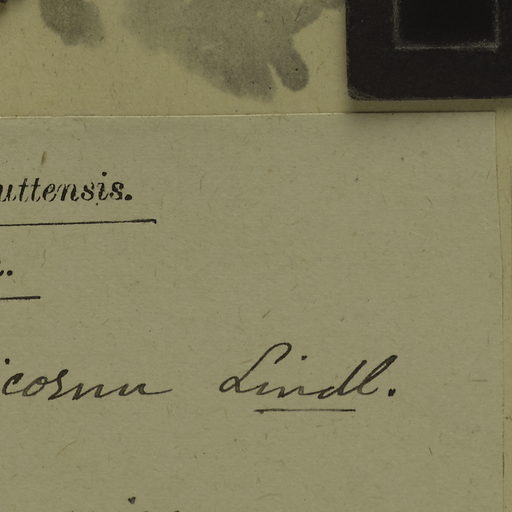 uttensis.
icornu Lindl.